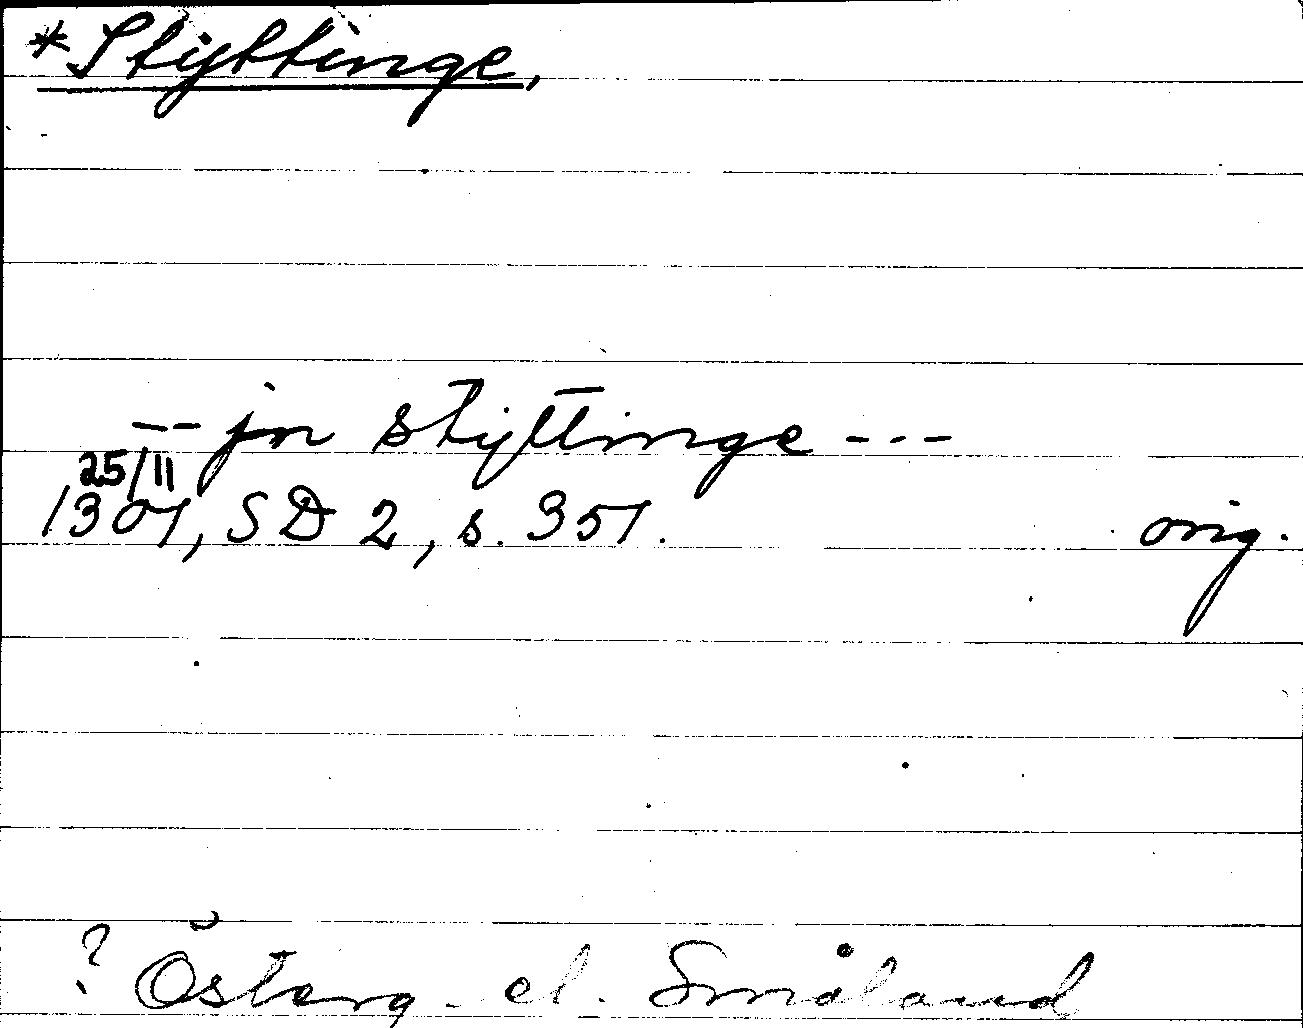 *Styttinge,
-- jn styttinge ---
25/11
1307, SD 2, s. 357. orig.
? Österg. el. Småland